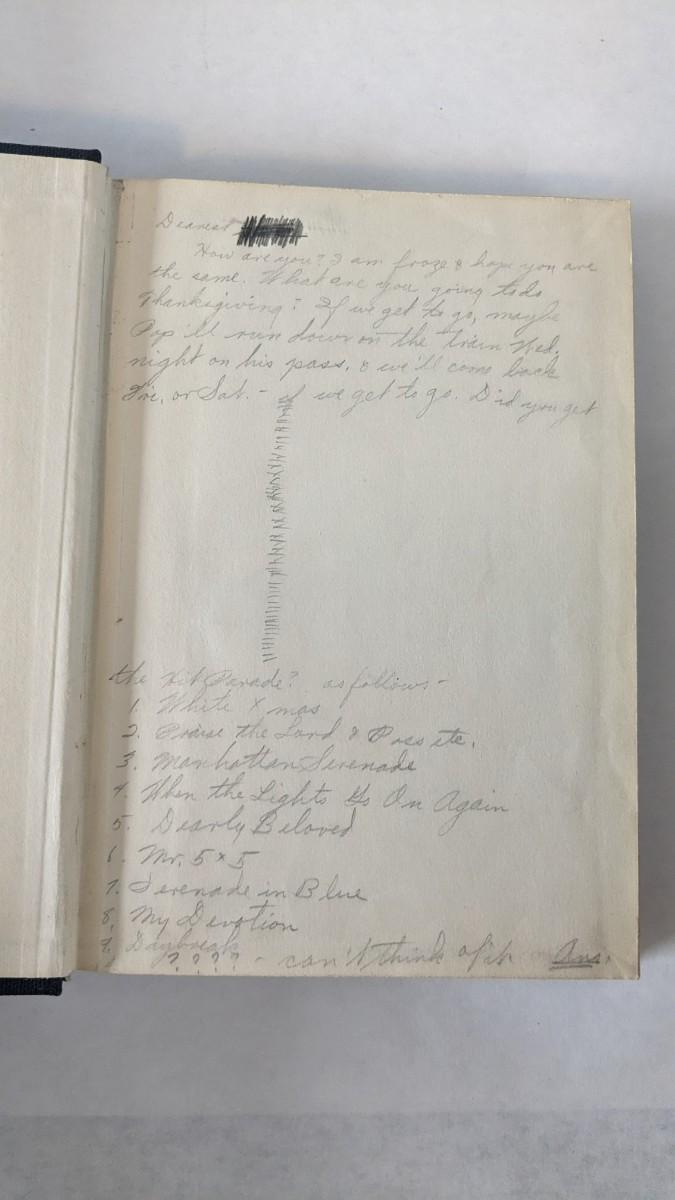 Dearest
How are you? I am froze & hope you are
the same. What are you going to do
Thanksgiving? If we get to go, maybe
Pop'll run down on the train Wed.
night on his pass, & we'll come back
Fri, or Sat. - if we get to go. Did you get
the Hit Parade? as follows -
1. White Xmas
2. Praise the Lord & Pass etc.
3. Manhattan Serenade
4. When the Lights Go On Again
5. Dearly Beloved
6. Mr. 5 x 5
7. Serenade in Blue
8. My Devotion
9. Daybreak
? ? ? ? - can't think of it Ans.